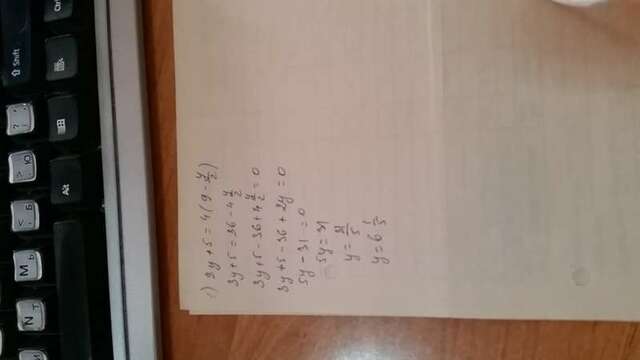 N
т
M
ь
<
,
Б
>
.
Ю
?
/
⇧ Shift
Alt
Ctr
1) 3y+5=4(9-y/2)
3y+5=36-4y/2
3y+5-36+4y/2=0
3y+5-36+2y=0
5y-31=0
5y=31
y=31/5
y=6 1/5